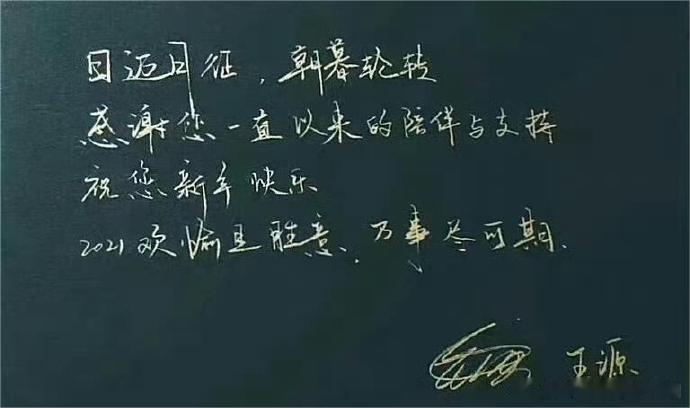 日迈月征，朝暮轮转
感谢您一直以来的陪伴与支持
祝您新年快乐
2021欢愉且胜意，万事尽可期、
王源